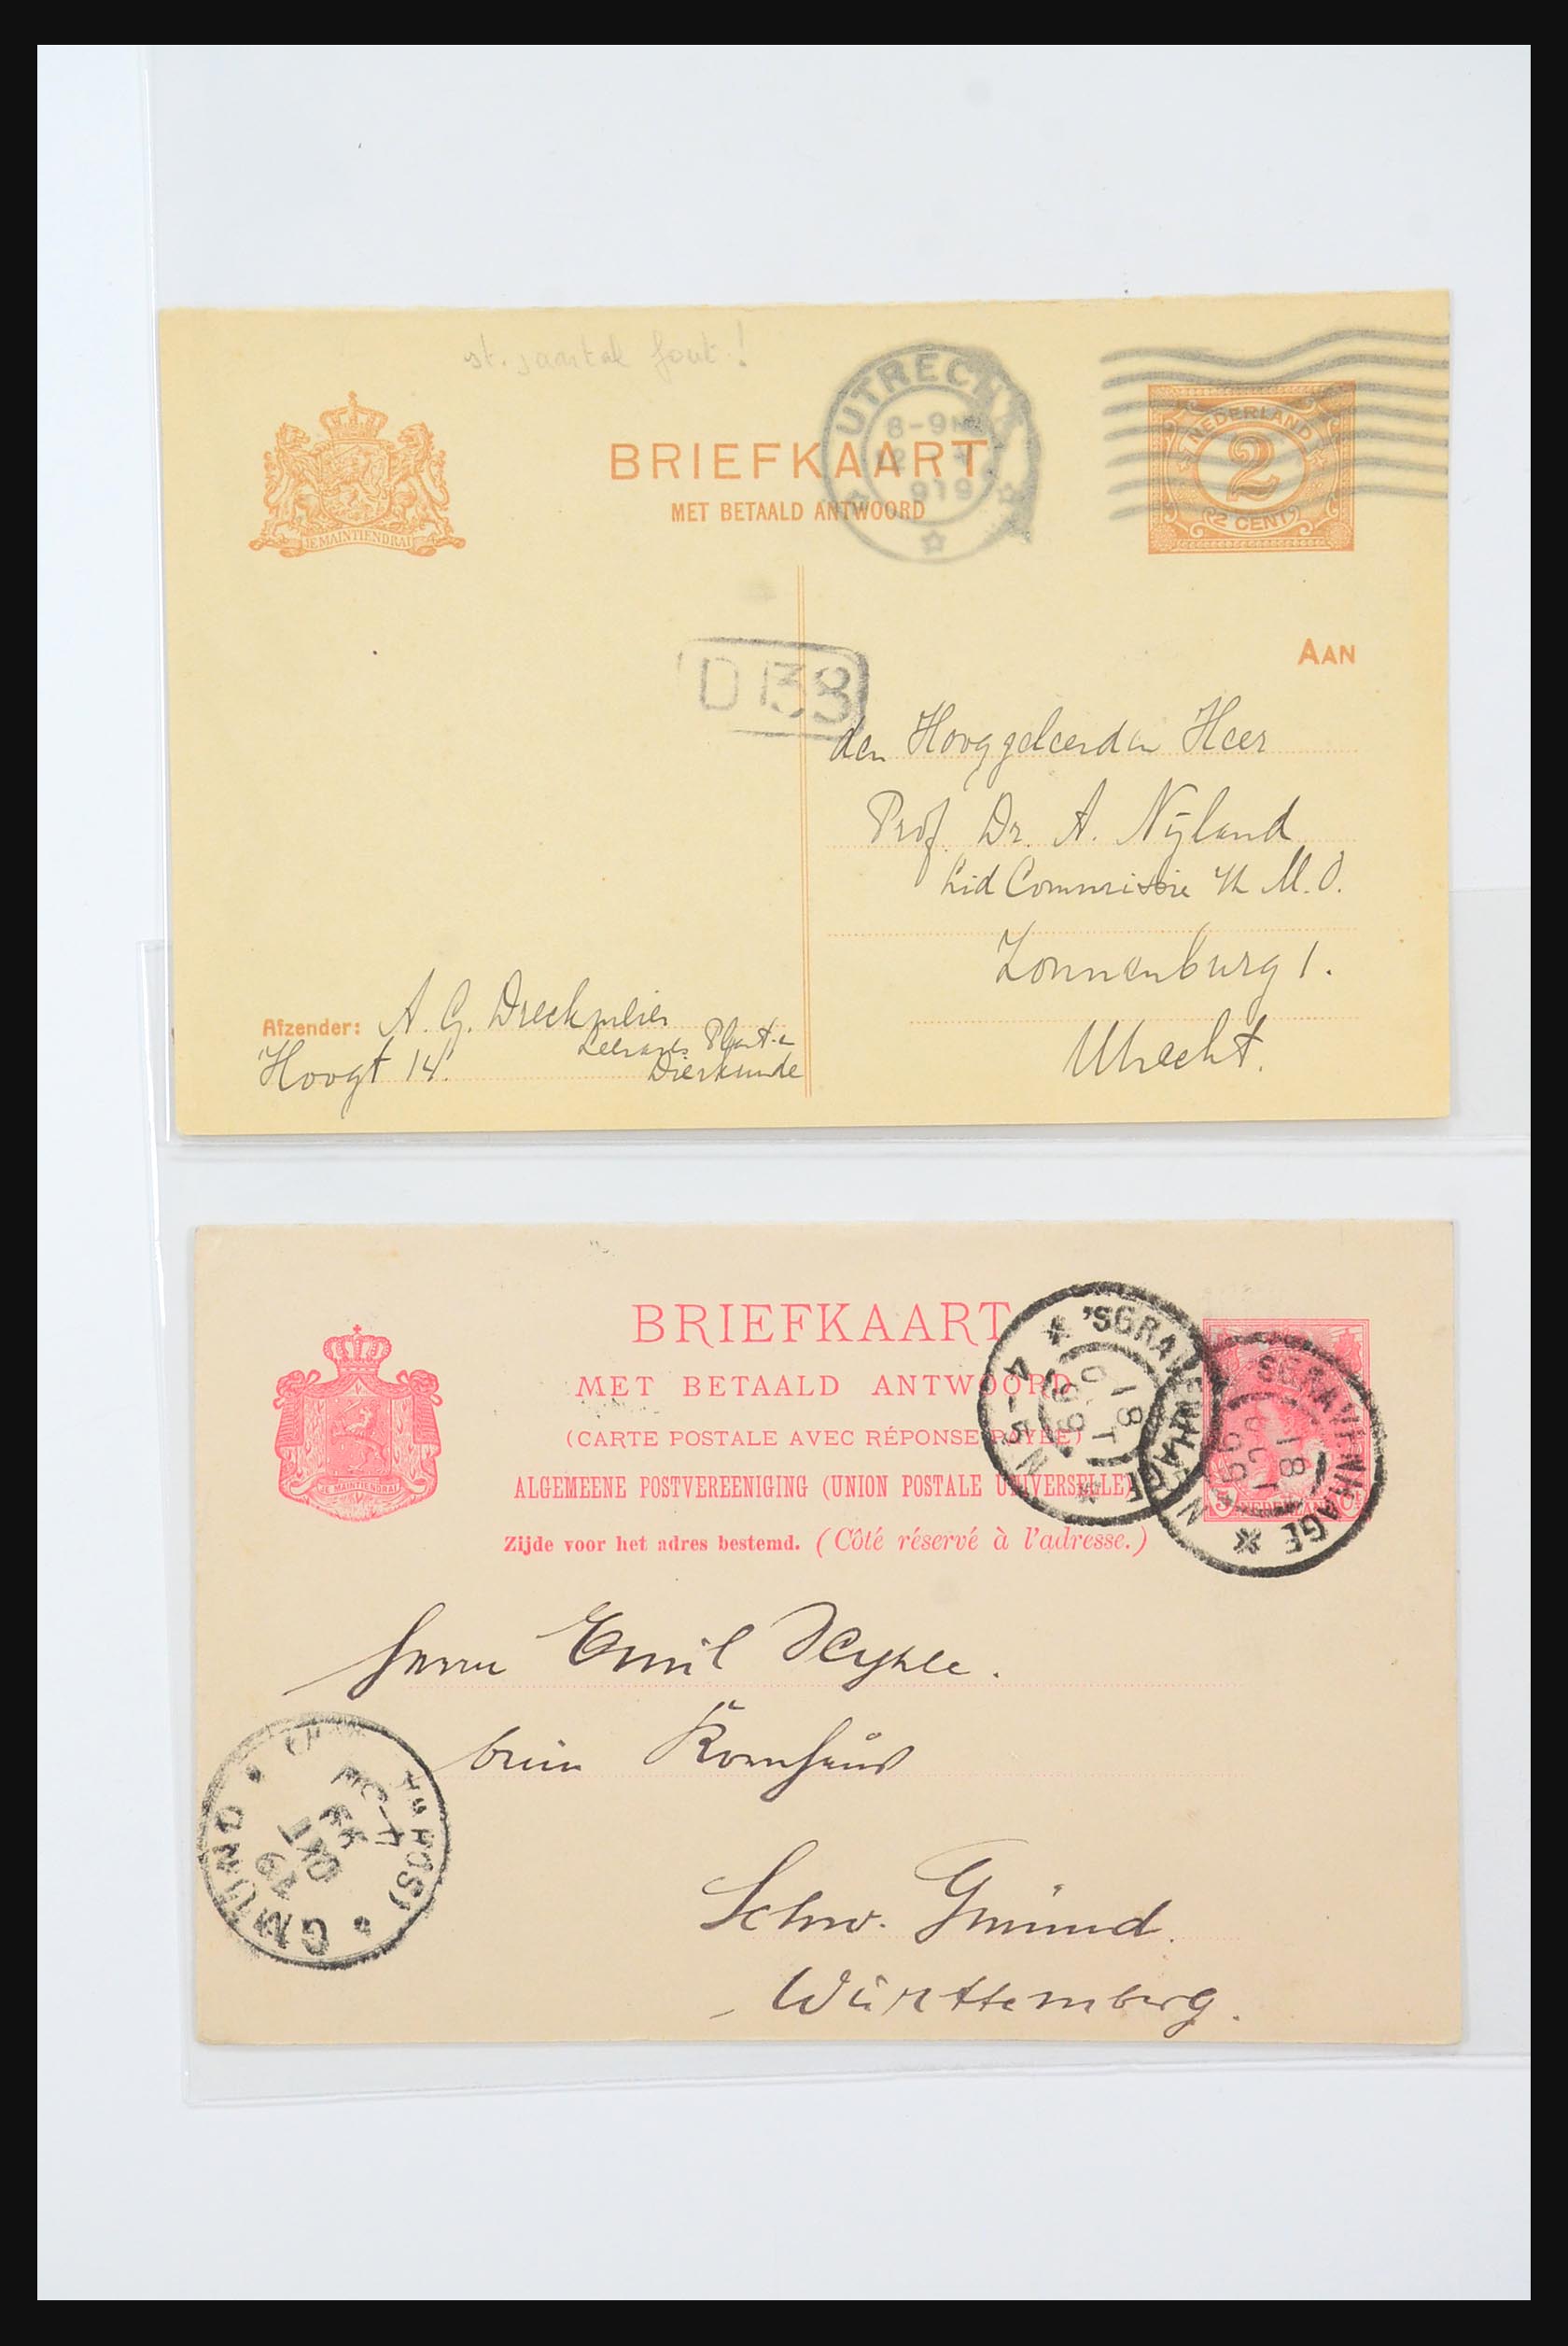 st. jaartal fout!
UTRECHT
8-9N
919
BRIEFKAART
MET BETAALD ANTWOORD
JE MAINTIENDRAI
NEDERLAND
2
2 CENT
D 138
AAN
den Hooggeleerden Heer
Prof. Dr. A. Nijland
Lid Commissie M. O.
Zonnenburg 1.
Utrecht.
Afzender: A. G. Dreckmeier
Leerares Plant- en
Hoogt 14. Dierkunde
BRIEFKAART
MET BETAALD ANTWOORD
(CARTE POSTALE AVEC RÉPONSE PAYÉE)
ALGEMEENE POSTVEREENIGING (UNION POSTALE UNIVERSELLE)
Zijde voor het adres bestemd. (Côté réservé à l'adresse.)
JE MAINTIENDRAI
'SGRAVENHAGE
18 OCT 99
4-5N
'SGRAVENHAGE
18 OCT 99
5 NEDERLAND Ct
Herrn Emil
beim Kornhaus
Schw. Gmünd.
Württemberg.
GMÜND
19 OKT